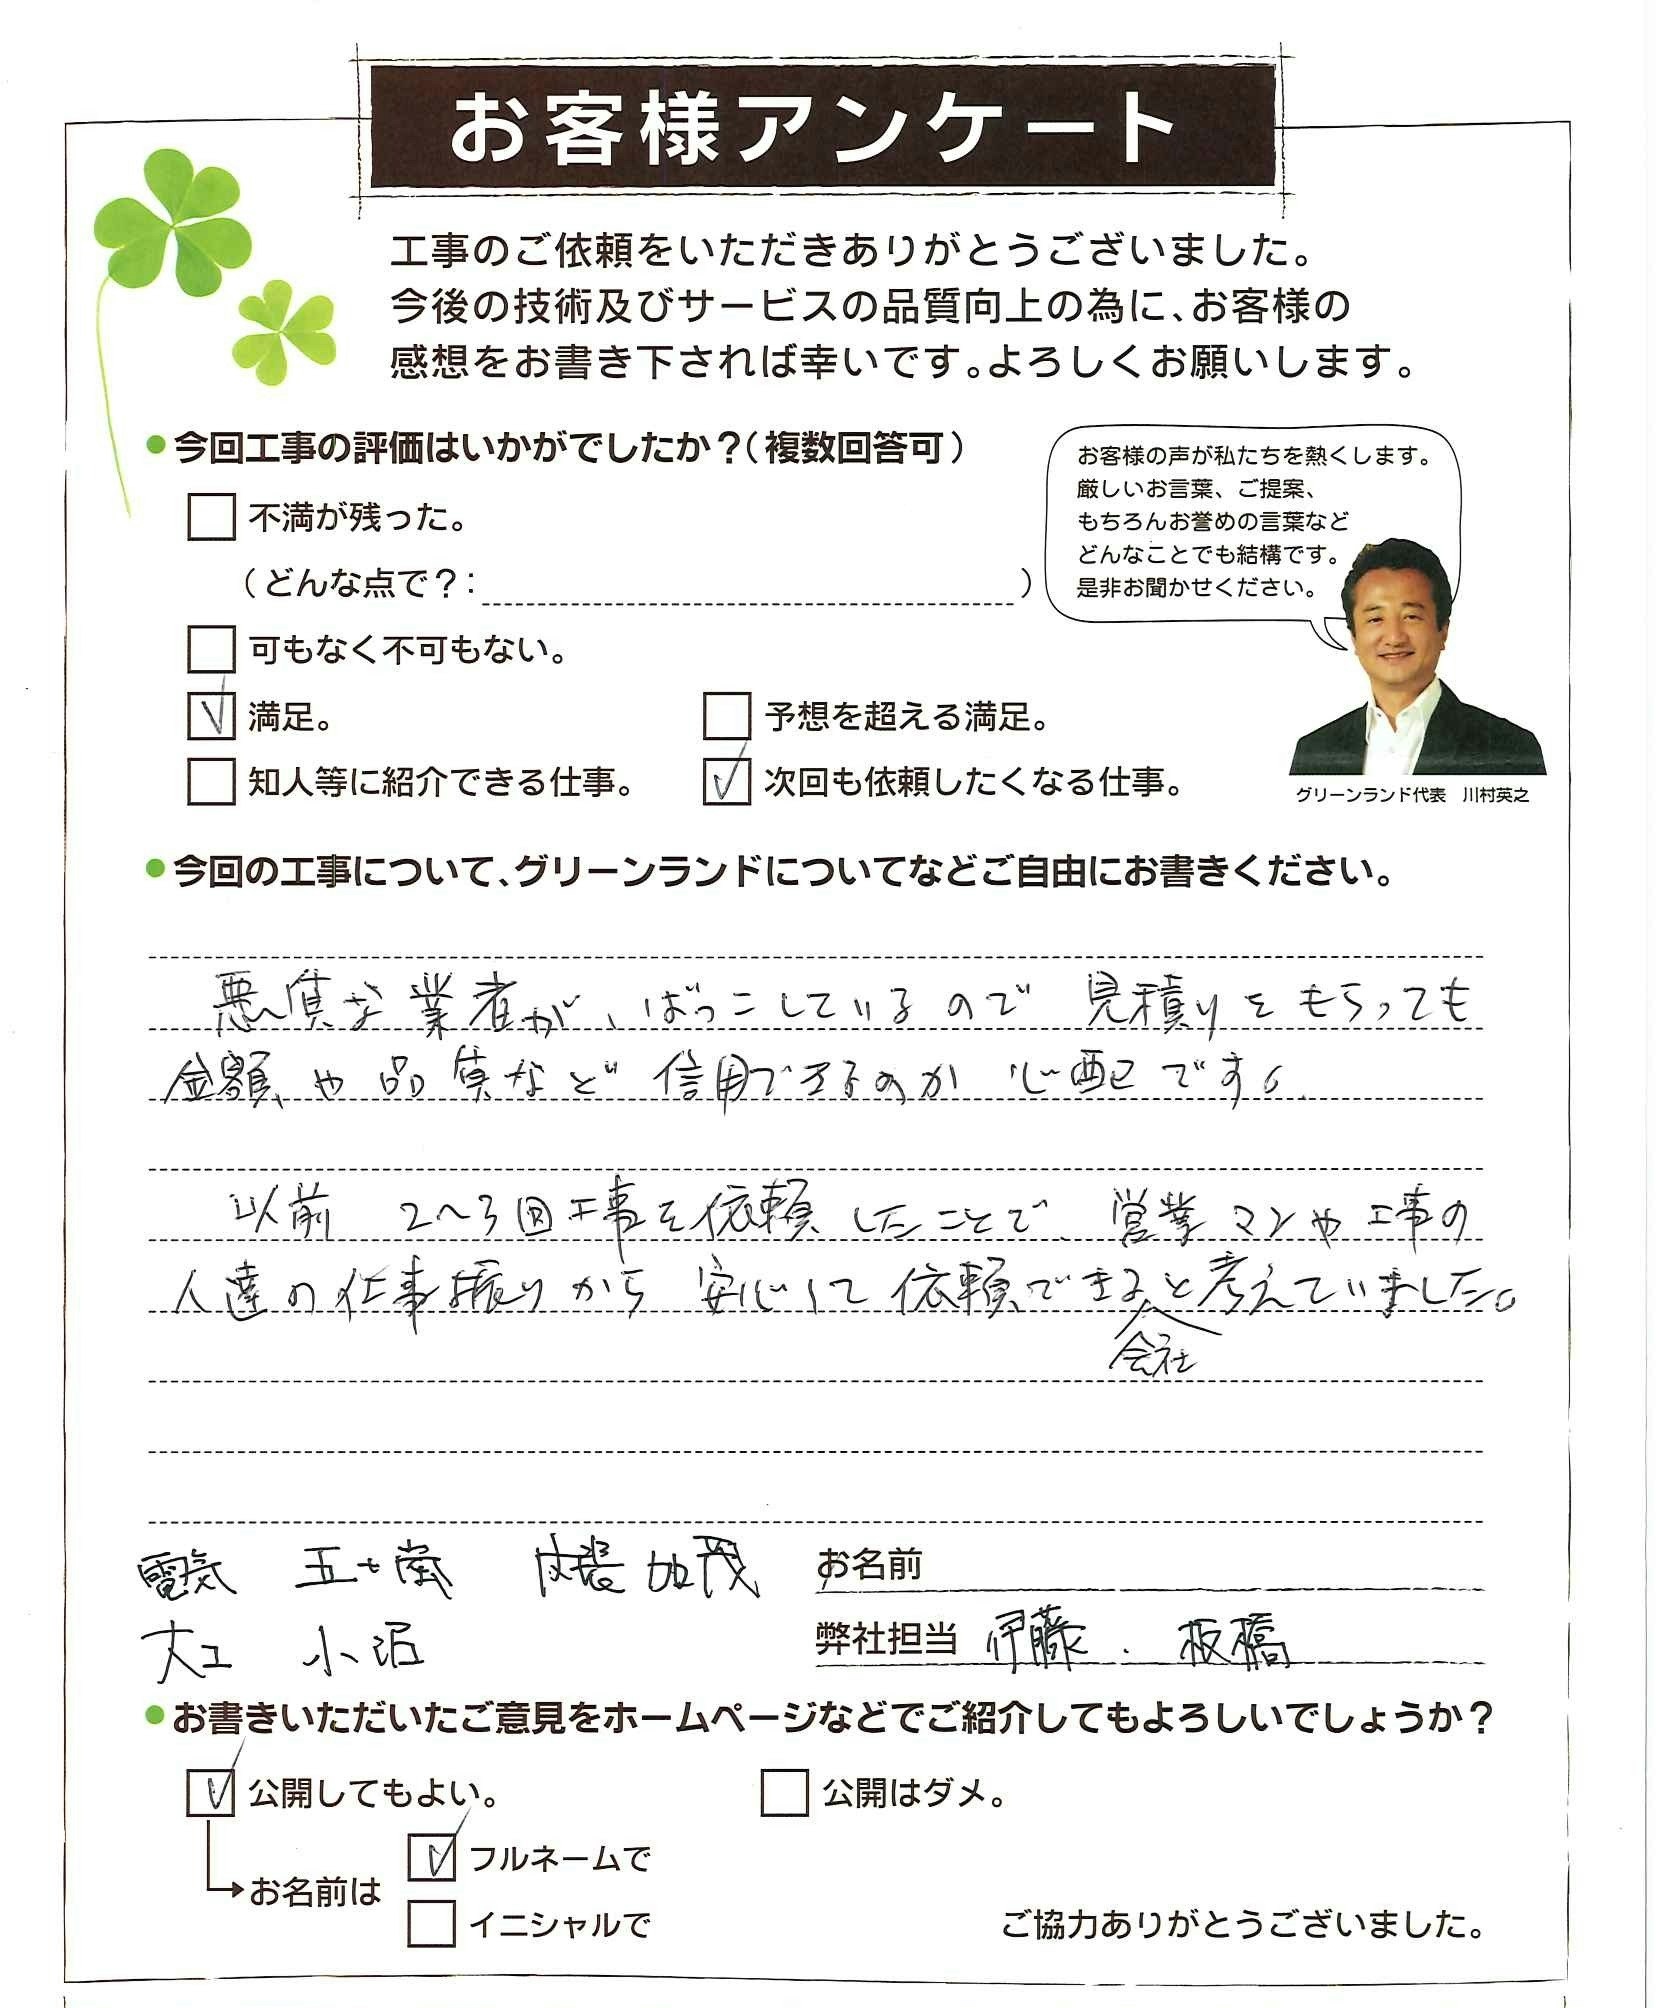 お客様アンケート
工事のご依頼をいただきありがとうございました。
今後の技術及びサービスの品質向上の為に、お客様の
感想をお書き下されば幸いです。よろしくお願いします。
●今回工事の評価はいかがでしたか？（複数回答可）
不満が残った。
（どんな点で？：　）
可もなく不可もない。
満足。
予想を超える満足。
知人等に紹介できる仕事。
次回も依頼したくなる仕事。
お客様の声が私たちを熱くします。
厳しいお言葉、ご提案、
もちろんお誉めの言葉など
どんなことでも結構です。
是非お聞かせください。
グリーンランド代表　川村英之
●今回の工事について、グリーンランドについてなどご自由にお書きください。
悪質な業者が、ばっこしているので 見積りをもらっても
金額や品質など信用できるのか心配です。
以前 2〜3回工事を依頼したことで、営業マンや工事の
人達の仕事振りから安心して依頼できると考えていました。
会社
電気 五十嵐 内装 加茂
大工 小沼
お名前
弊社担当 伊藤、板橋
●お書きいただいたご意見をホームページなどでご紹介してもよろしいでしょうか？
公開してもよい。
公開はダメ。
お名前は
フルネームで
イニシャルで
ご協力ありがとうございました。